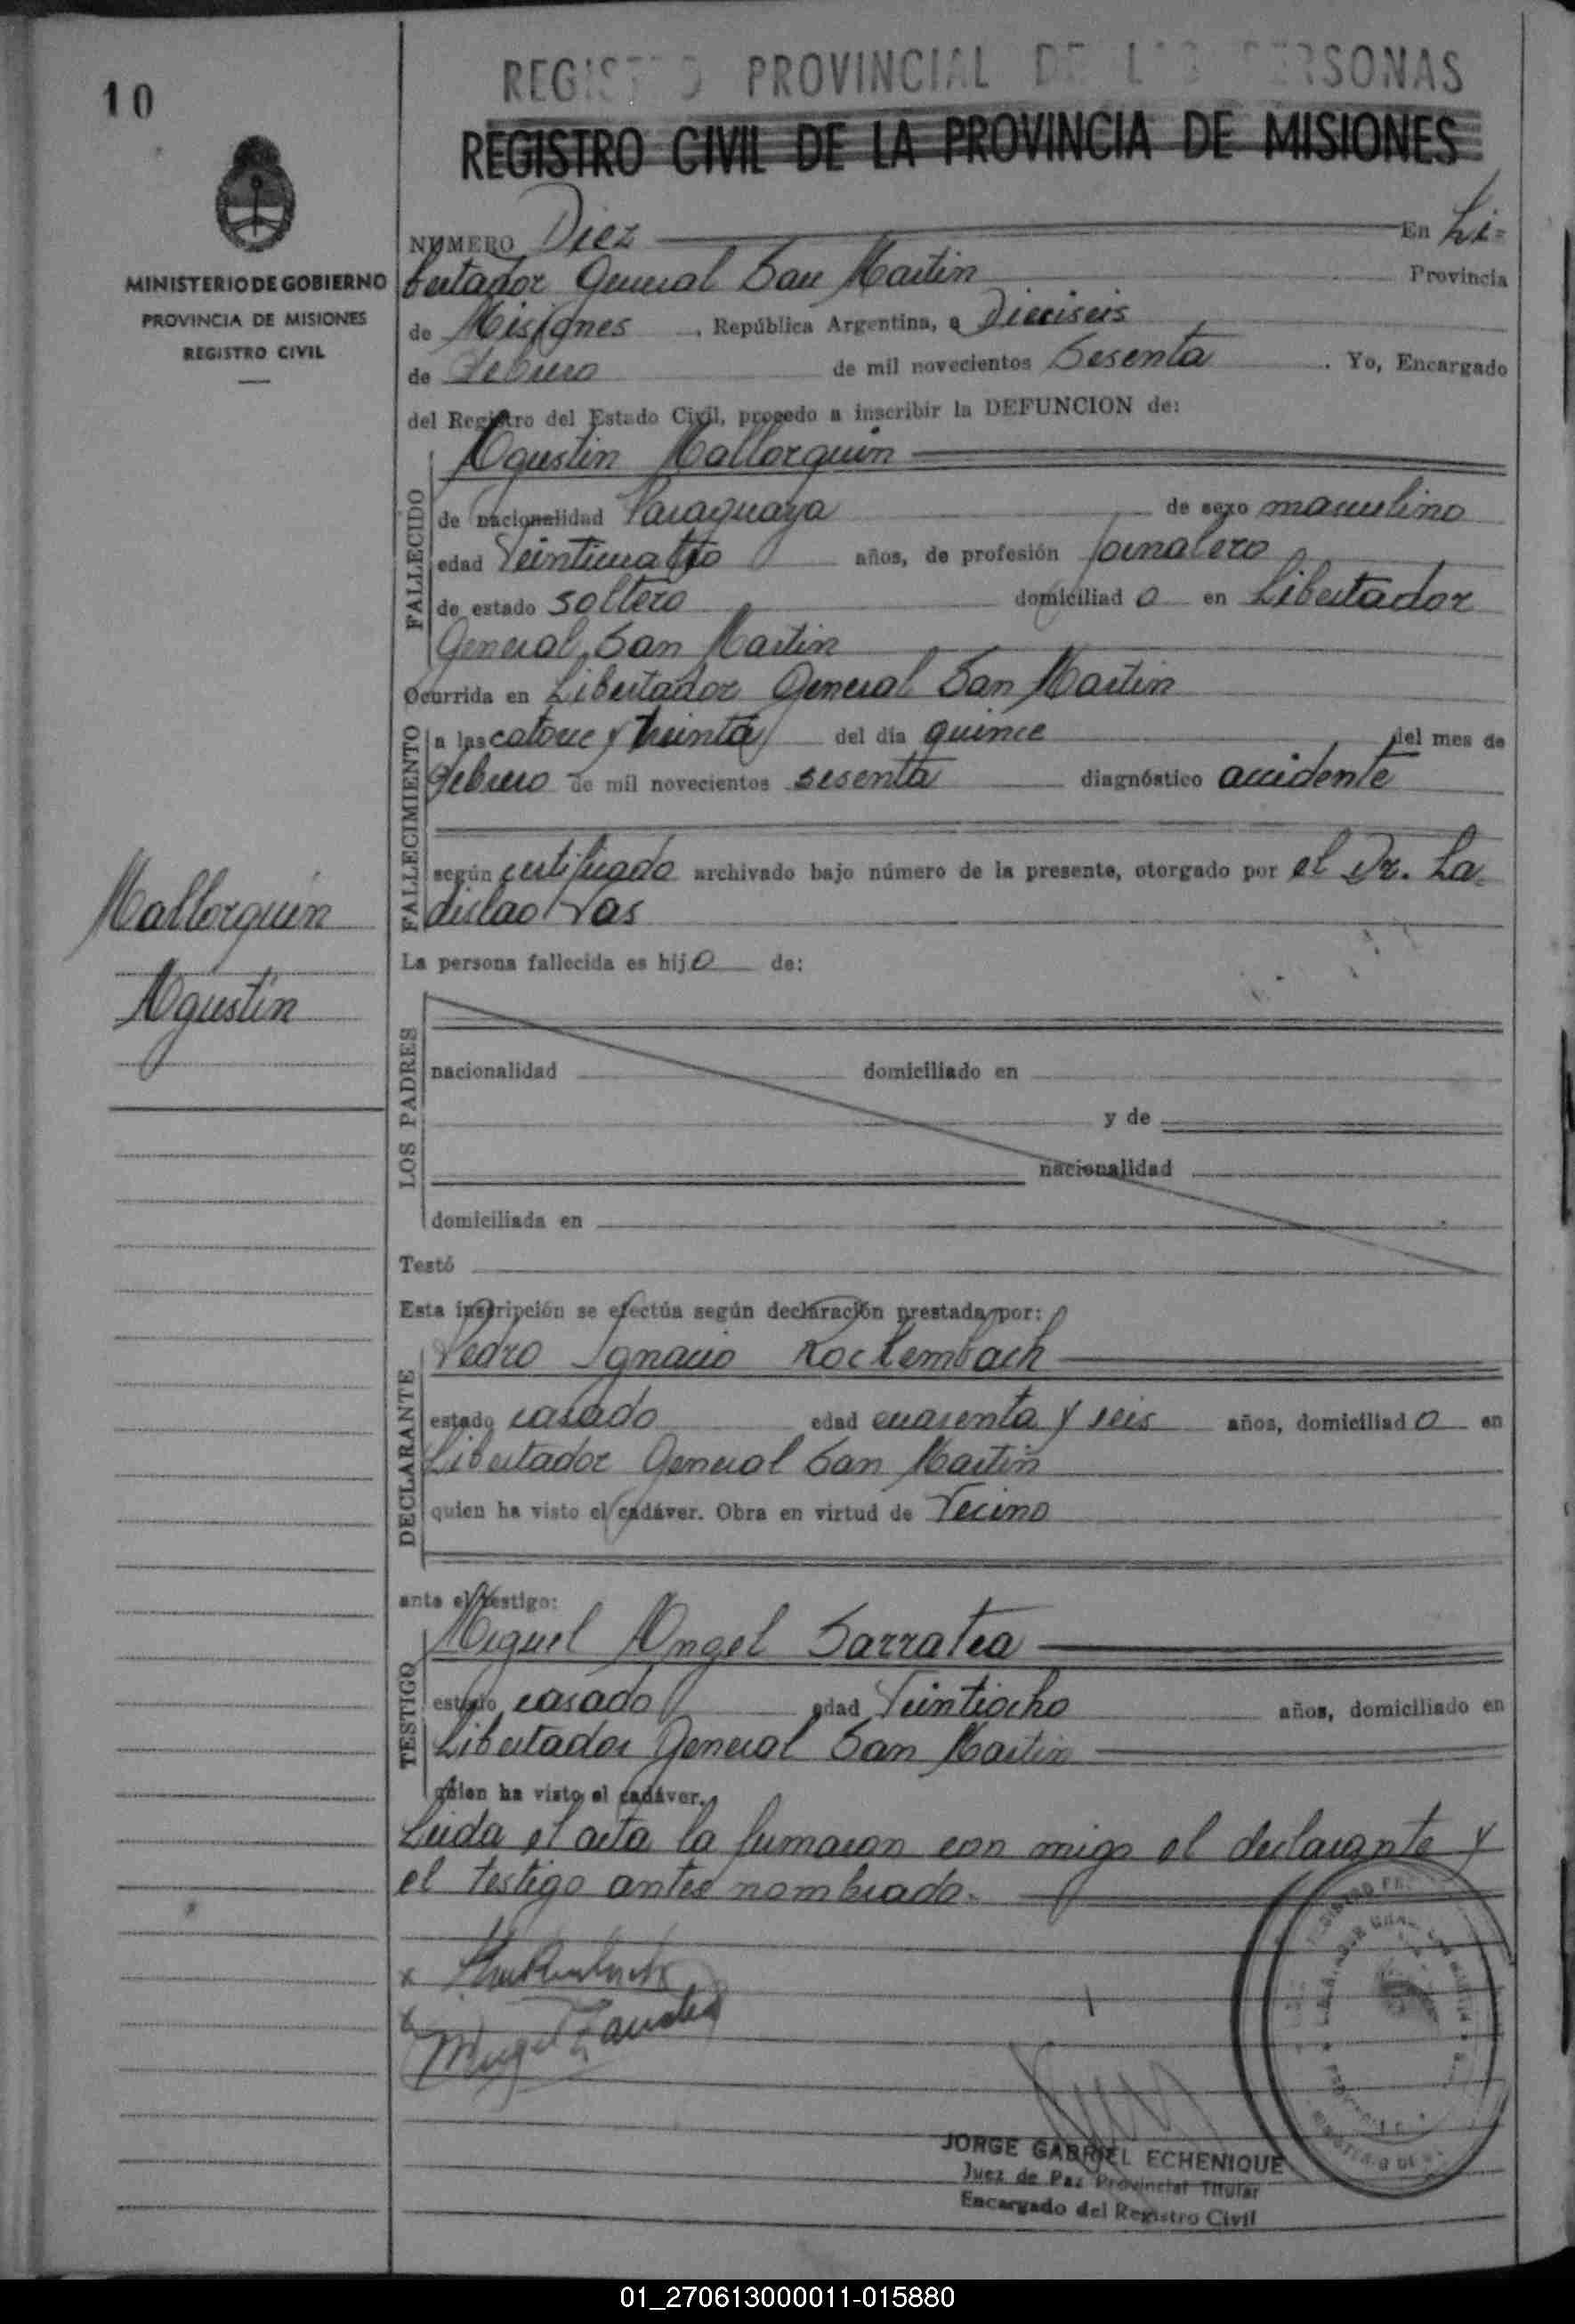 10
REGISTRO PROVINCIAL DE LAS PERSONAS
REGISTRO CIVIL DE LA PROVINCIA DE MISIONES
MINISTERIO DE GOBIERNO
PROVINCIA DE MISIONES
REGISTRO CIVIL
NUMERO Diez En Li=
bertador General San Martin Provincia
de Misiones, República Argentina, a Dieciseis
de Febrero de mil novecientos Sesenta. Yo, Encargado
del Registro del Estado Civil, procedo a inscribir la DEFUNCION de:
Agustin Mallorquin
FALLECIDO
de nacionalidad Paraguaya de sexo masculino
edad Veinticuatro años, de profesión Jornalero
de estado soltero domiciliad o en Libertador
General San Martin
Ocurrida en Libertador General San Martin
FALLECIMIENTO
a las catorce y treinta del día quince del mes de
Febrero de mil novecientos sesenta diagnóstico accidente
según certificado archivado bajo número de la presente, otorgado por el Dr. La=
dislao Vas
Mallorquin
Agustin
La persona fallecida es hijo de:
LOS PADRES
nacionalidad domiciliado en
y de
nacionalidad
domiciliada en
Testó
Esta inscripción se efectúa según declaración prestada por:
DECLARANTE
Pedro Ignacio Rockembach
estado casado edad cuarenta y seis años, domiciliad o en
Libertador General San Martin
quien ha visto el cadáver. Obra en virtud de Vecino
ante el testigo:
TESTIGO
Miguel Angel Sarratea
estado casado edad Veintiocho años, domiciliado en
Libertador General San Martin
quien ha visto el cadáver.
Leida el acta la firmaron con migo el declarante y
el testigo antes nombrado.
JORGE GABRIEL ECHENIQUE
Juez de Paz Provincial Titular
Encargado del Registro Civil
01_270613000011-015880